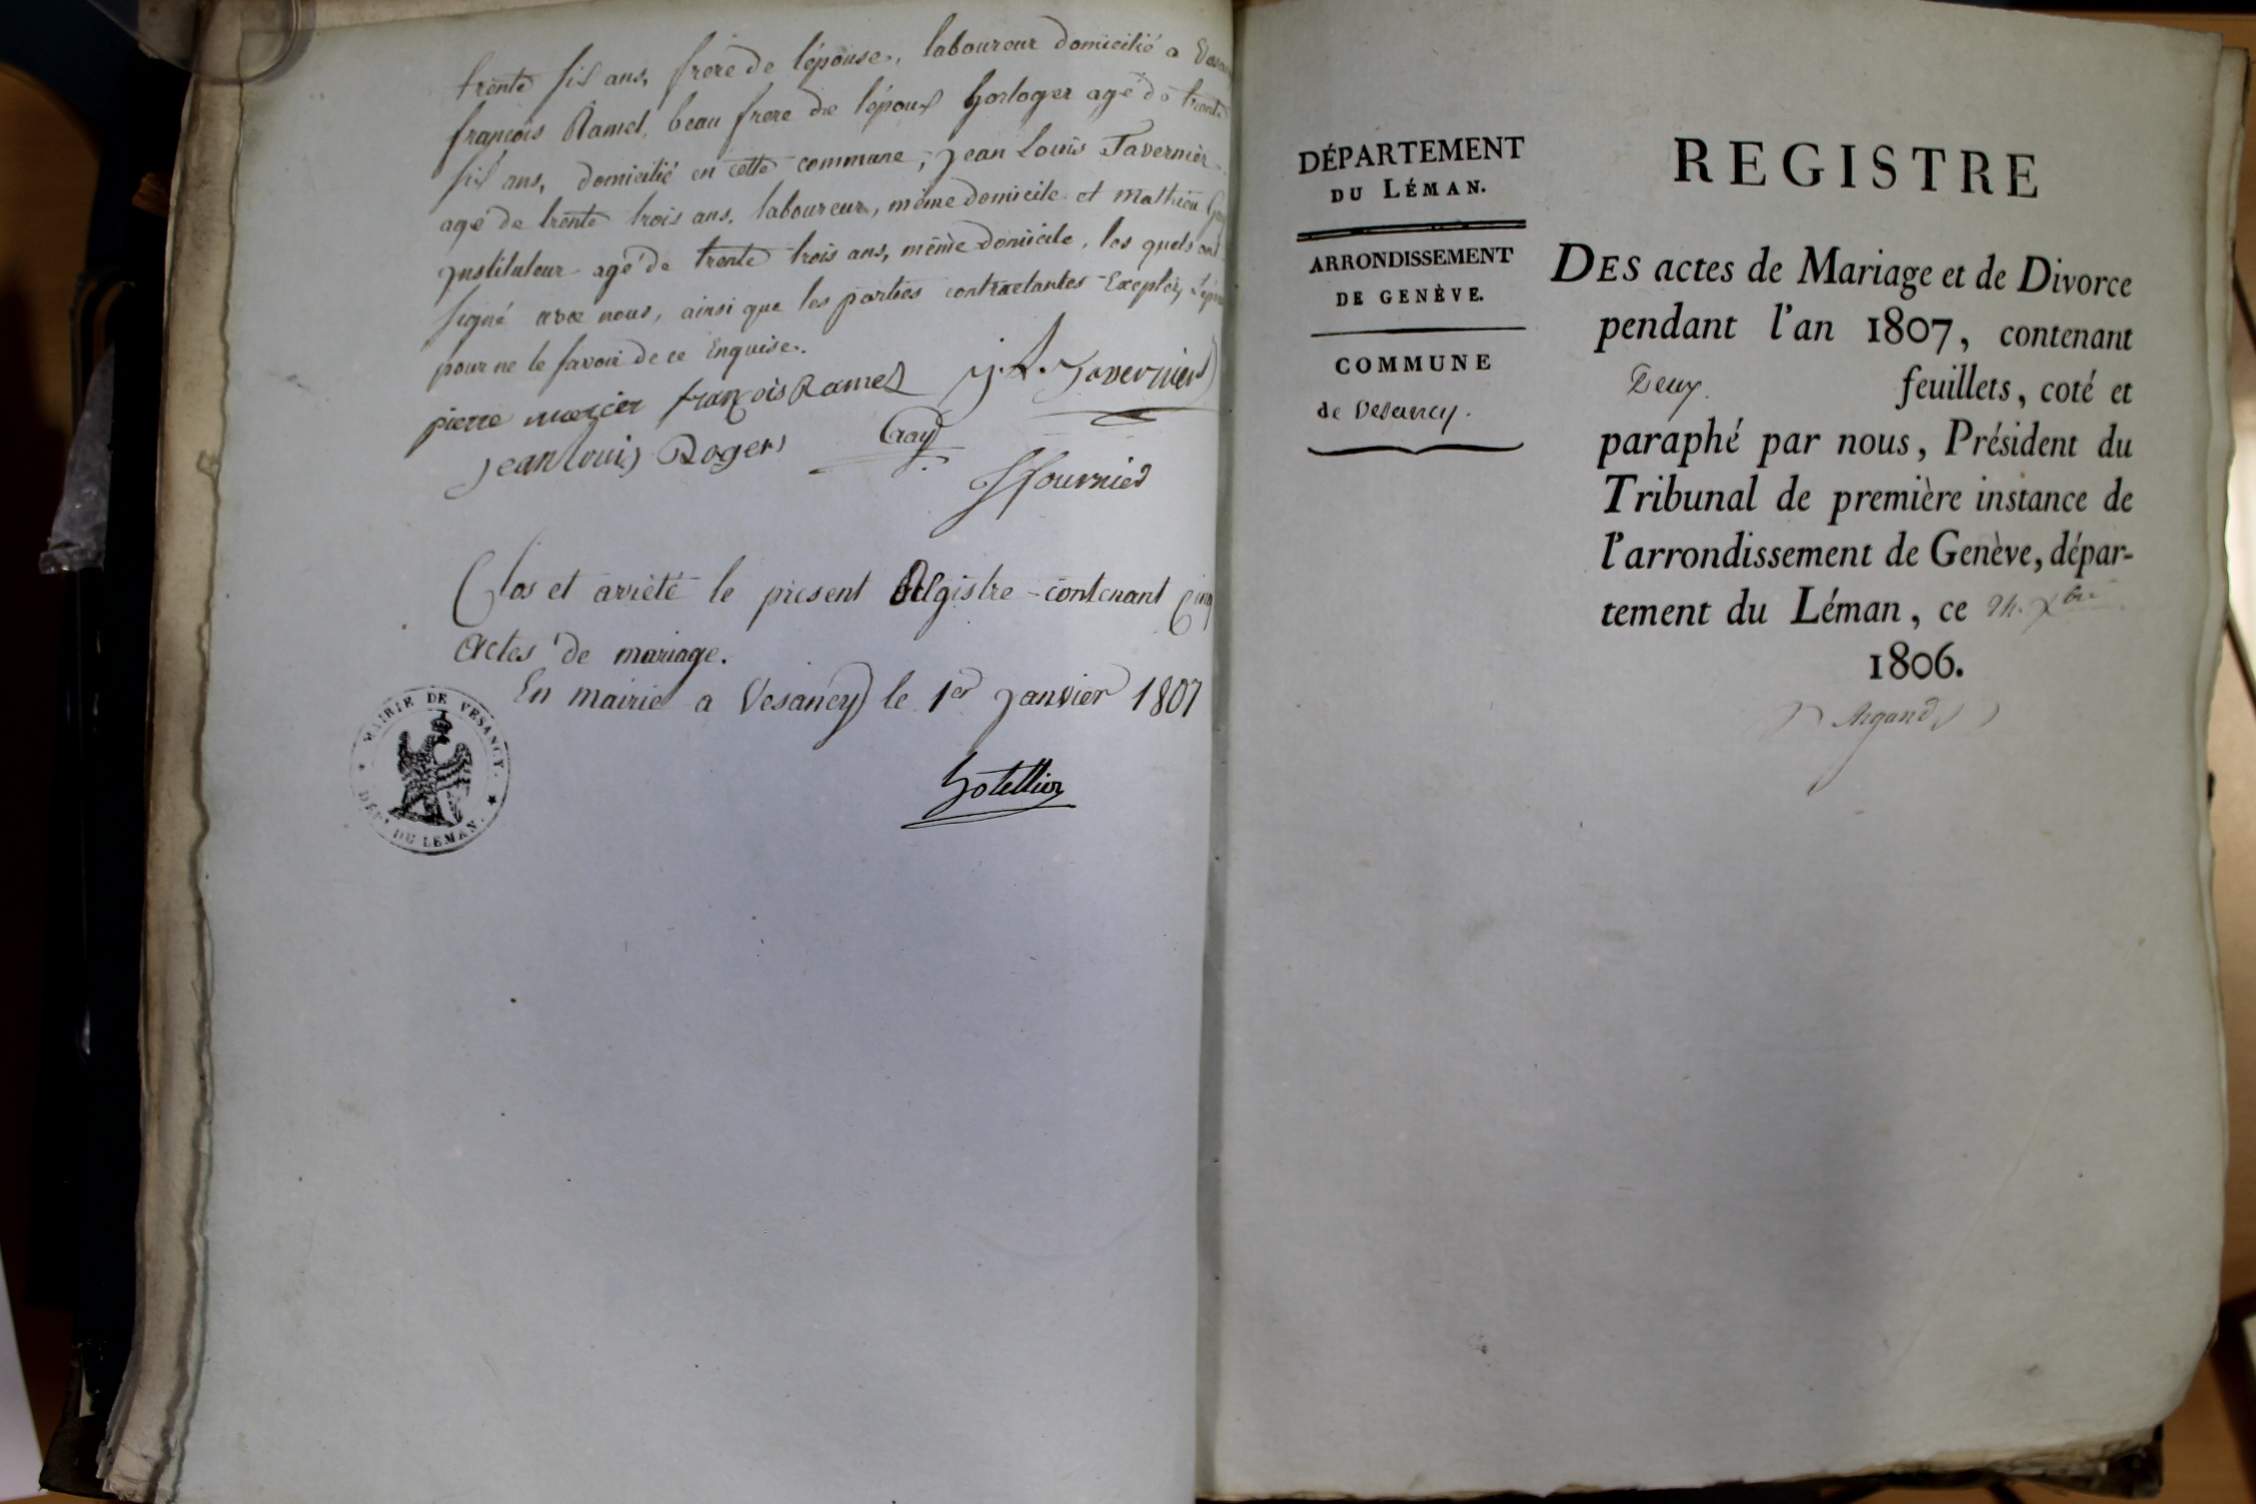 trente six ans, frere de l'épouse, laboureur domicilié a
françois Ramel, beau frere de l'époux horloger agé de trente
six ans, domicilié en cette commune, jean Louis Tavernier
agé de trente trois ans, laboureur, même domicile et mathieu
jnstituteur agé de trente trois ans, même domicile, les quels ont
signé avec nous, ainsi que les parties contractantes Excepté
pour ne le savoir de ce Enquise.
pierre mercier françois Ramel j. L. Tavernier
jean louis Rogers Gay
Fournier
Clos et arrêté le present Registre contenant Cinq
Actes de mariage.
En mairie a Vesancy le 1er janvier 1807
MAIRIE DE VESANCY.
DÉPT DU LÉMAN.
hotellier
DÉPARTEMENT
DU LÉMAN.
ARRONDISSEMENT
DE GENÈVE.
COMMUNE
de Vesancy.
REGISTRE
DES actes de Mariage et de Divorce
pendant l'an 1807, contenant
Deux feuillets, coté et
paraphé par nous, Président du
Tribunal de première instance de
l'arrondissement de Genève, dépar-
tement du Léman, ce 24. Xbre
1806.
Argand